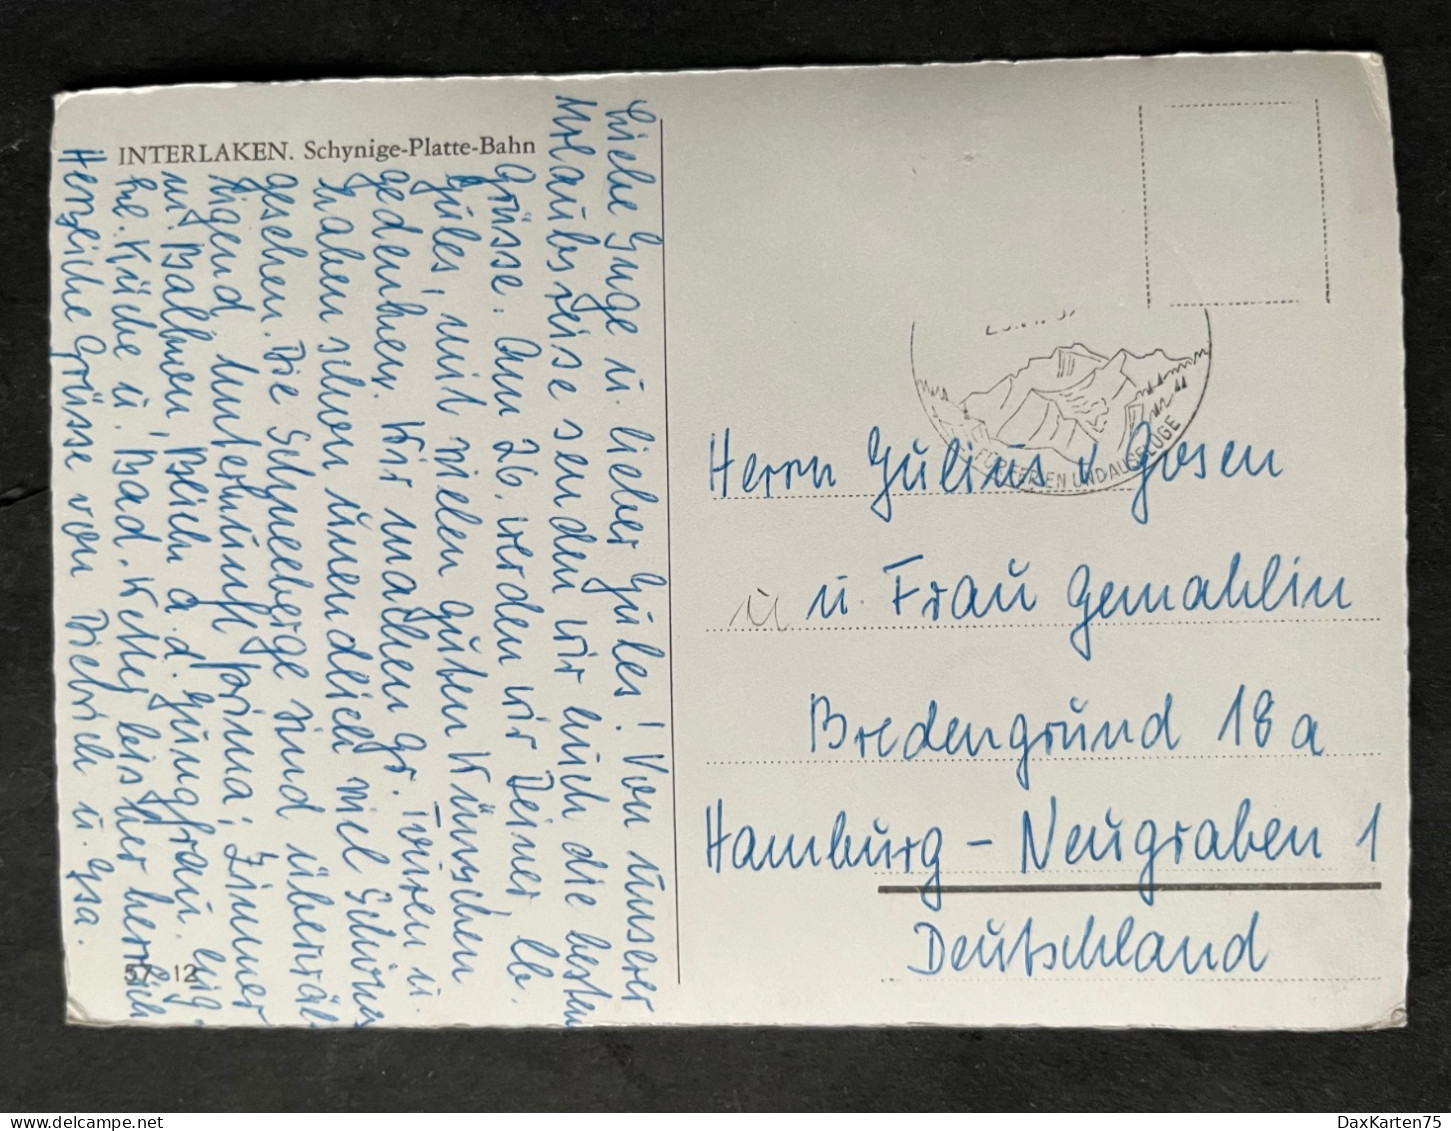 INTERLAKEN. Schynige-Platte-Bahn
Liebe Inge u. lieber Jules! Von unserer
Urlaubsreise senden wir euch die besten
Grüsse. Am 26. werden wir Deiner, lb.
Jules, mit vielen guten Wünschen
gedenken. Wir machen gr. Touren u.
haben schon unendlich viel Schönes
gesehen. Die Schneeberge sind überwäl-
tigend. Unterkunft prima; Zimmer
m. Balkon, Blick a. d. Jungfrau, eig-
ne Küche u. Bad. Wetter bisher herrlich
Herzliche Grüsse von Dietrich u. Isa.
57 12
FÜR FERIEN UND AUSFLÜGE
Herrn Julius v Josen
u u. Frau Gemahlin
Bredengrund 18 a
Hamburg - Neugraben 1
Deutschland
delcampe.net
DaxKarten75